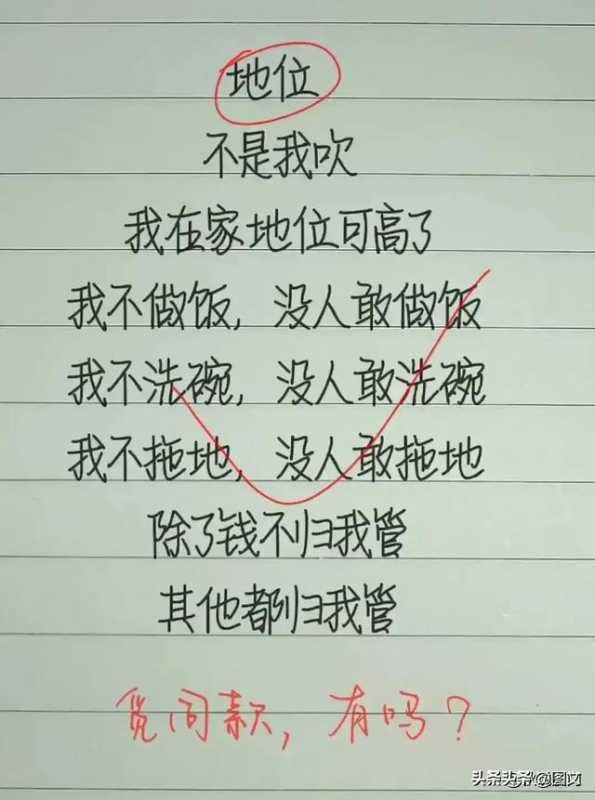 地位
不是我吹
我在家地位可高了
我不做饭，没人敢做饭
我不洗碗，没人敢洗碗
我不拖地，没人敢拖地
除了钱不归我管
其他都归我管
觅同款，有吗？
头条@图文